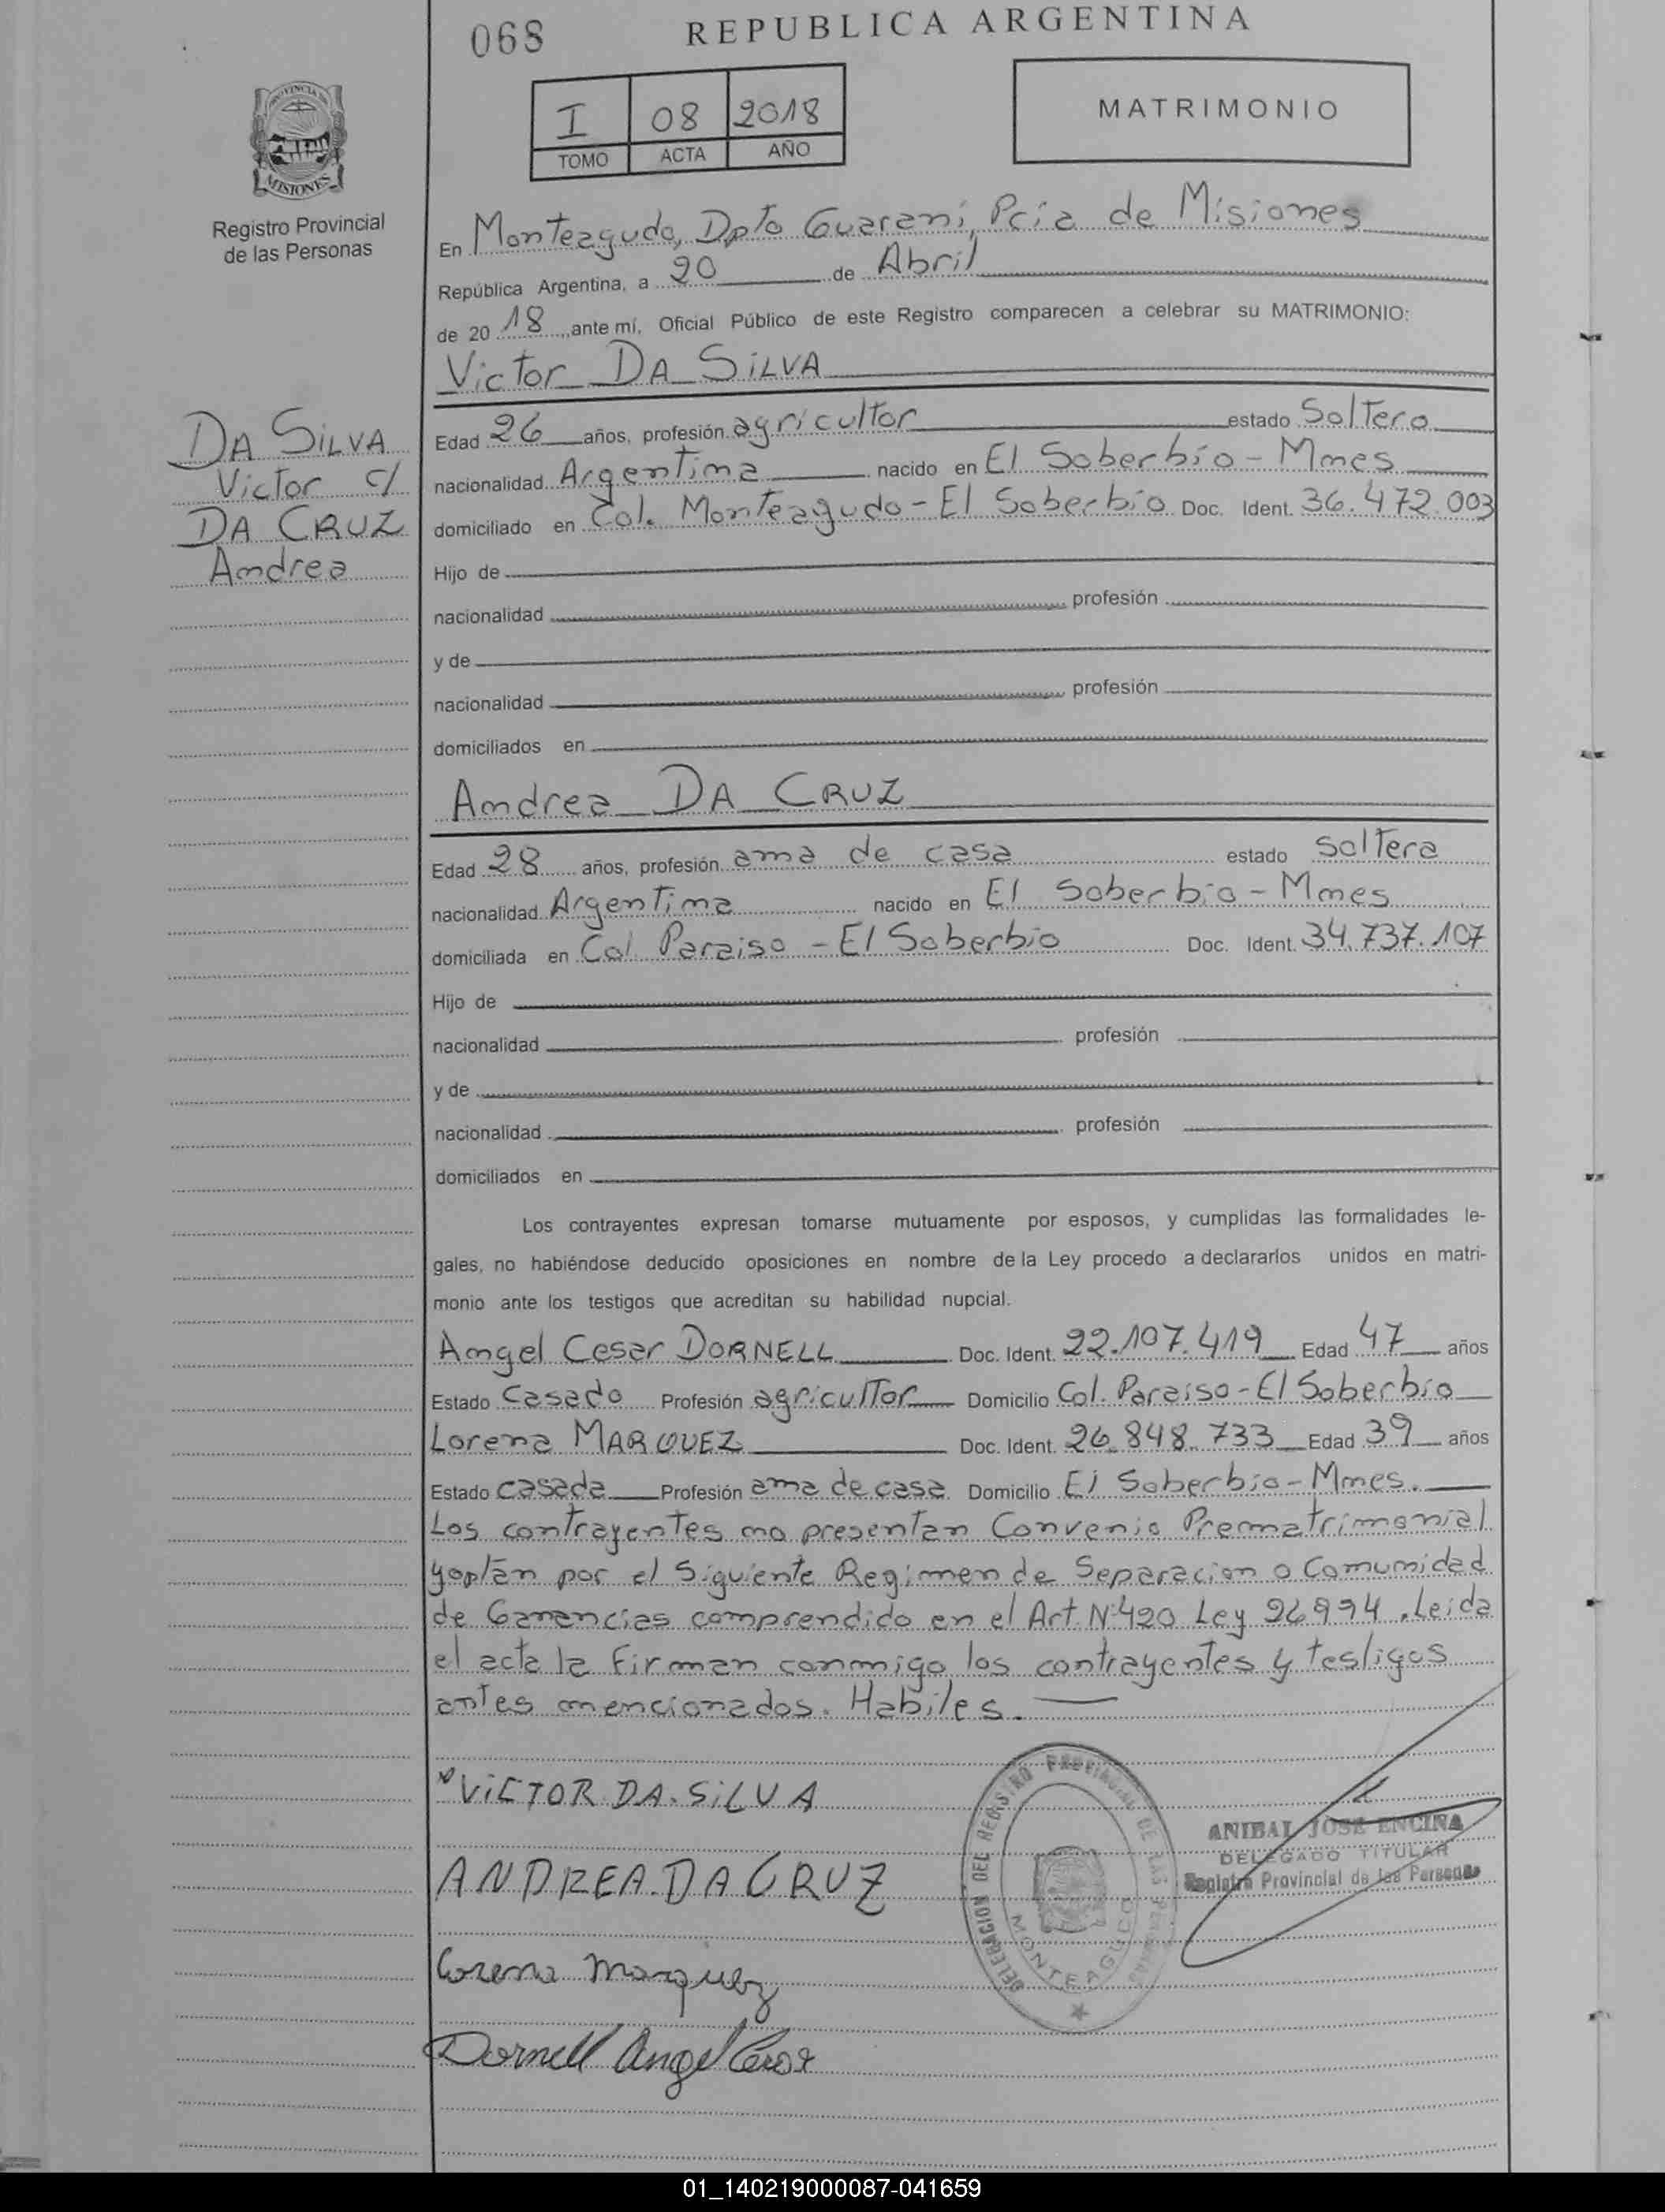 068
REPUBLICA ARGENTINA
I 08 2018
TOMO ACTA AÑO
MATRIMONIO
PROVINCIA DE
MISIONES
Registro Provincial
de las Personas
En Monteagudo, Dpto Guarani, Pcia de Misiones
República Argentina, a 20 de Abril
de 2018, ante mí, Oficial Público de este Registro comparecen a celebrar su MATRIMONIO:
Victor DA SILVA
DA SILVA
Victor c/
DA CRUZ
Andrea
Edad 26 años, profesión agricultor estado Soltero
nacionalidad Argentina nacido en El Soberbio - Mnes
domiciliado en Col. Monteagudo - El Soberbio Doc. Ident. 36.472.003
Hijo de
nacionalidad profesión
y de
nacionalidad profesión
domiciliados en
Andrea DA CRUZ
Edad 28 años, profesión ama de casa estado Soltera
nacionalidad Argentina nacido en El Soberbio - Mnes
domiciliada en Col. Paraiso - El Soberbio Doc. Ident. 34.737.107
Hijo de
nacionalidad profesión
y de
nacionalidad profesión
domiciliados en
Los contrayentes expresan tomarse mutuamente por esposos, y cumplidas las formalidades le-
gales, no habiéndose deducido oposiciones en nombre de la Ley procedo a declararlos unidos en matri-
monio ante los testigos que acreditan su habilidad nupcial.
Angel Cesar DORNELL Doc. Ident. 22.107.419 Edad 47 años
Estado Casado Profesión agricultor Domicilio Col. Paraiso - El Soberbio
Lorena MARQUEZ Doc. Ident. 26.848.733 Edad 39 años
Estado casada Profesión ama de casa Domicilio El Soberbio - Mnes.
Los contrayentes no presentan Convenio Prematrimonial
y optan por el Siguiente Regimen de Separacion o Comunidad
de Ganancias comprendido en el Art. Nº 420 Ley 26994. Leida
el acta la firman conmigo los contrayentes y testigos
antes mencionados. Habiles.
VICTOR DA SILVA
ANDREA DA CRUZ
Lorena Marquez
Dornell Angel Cesar
DELEGACION DEL REGISTRO PROVINCIAL DE LAS PERSONAS
MONTEAGUDO
ANIBAL JOSE ENCINA
DELEGADO TITULAR
Registro Provincial de las Personas
01_140219000087-041659